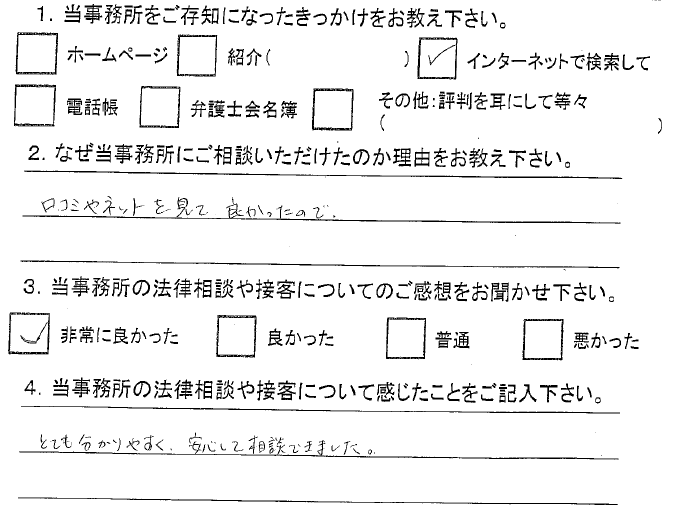 1. 当事務所をご存知になったきっかけをお教え下さい。
□ ホームページ □ 紹介( ) ☑ インターネットで検索して
□ 電話帳 □ 弁護士会名簿 □ その他:評判を耳にして等々
( )
2. なぜ当事務所にご相談いただけたのか理由をお教え下さい。
口コミやネットを見て 良かったので、
3. 当事務所の法律相談や接客についてのご感想をお聞かせ下さい。
☑ 非常に良かった □ 良かった □ 普通 □ 悪かった
4. 当事務所の法律相談や接客について感じたことをご記入下さい。
とても分かりやすく、安心して相談できました。